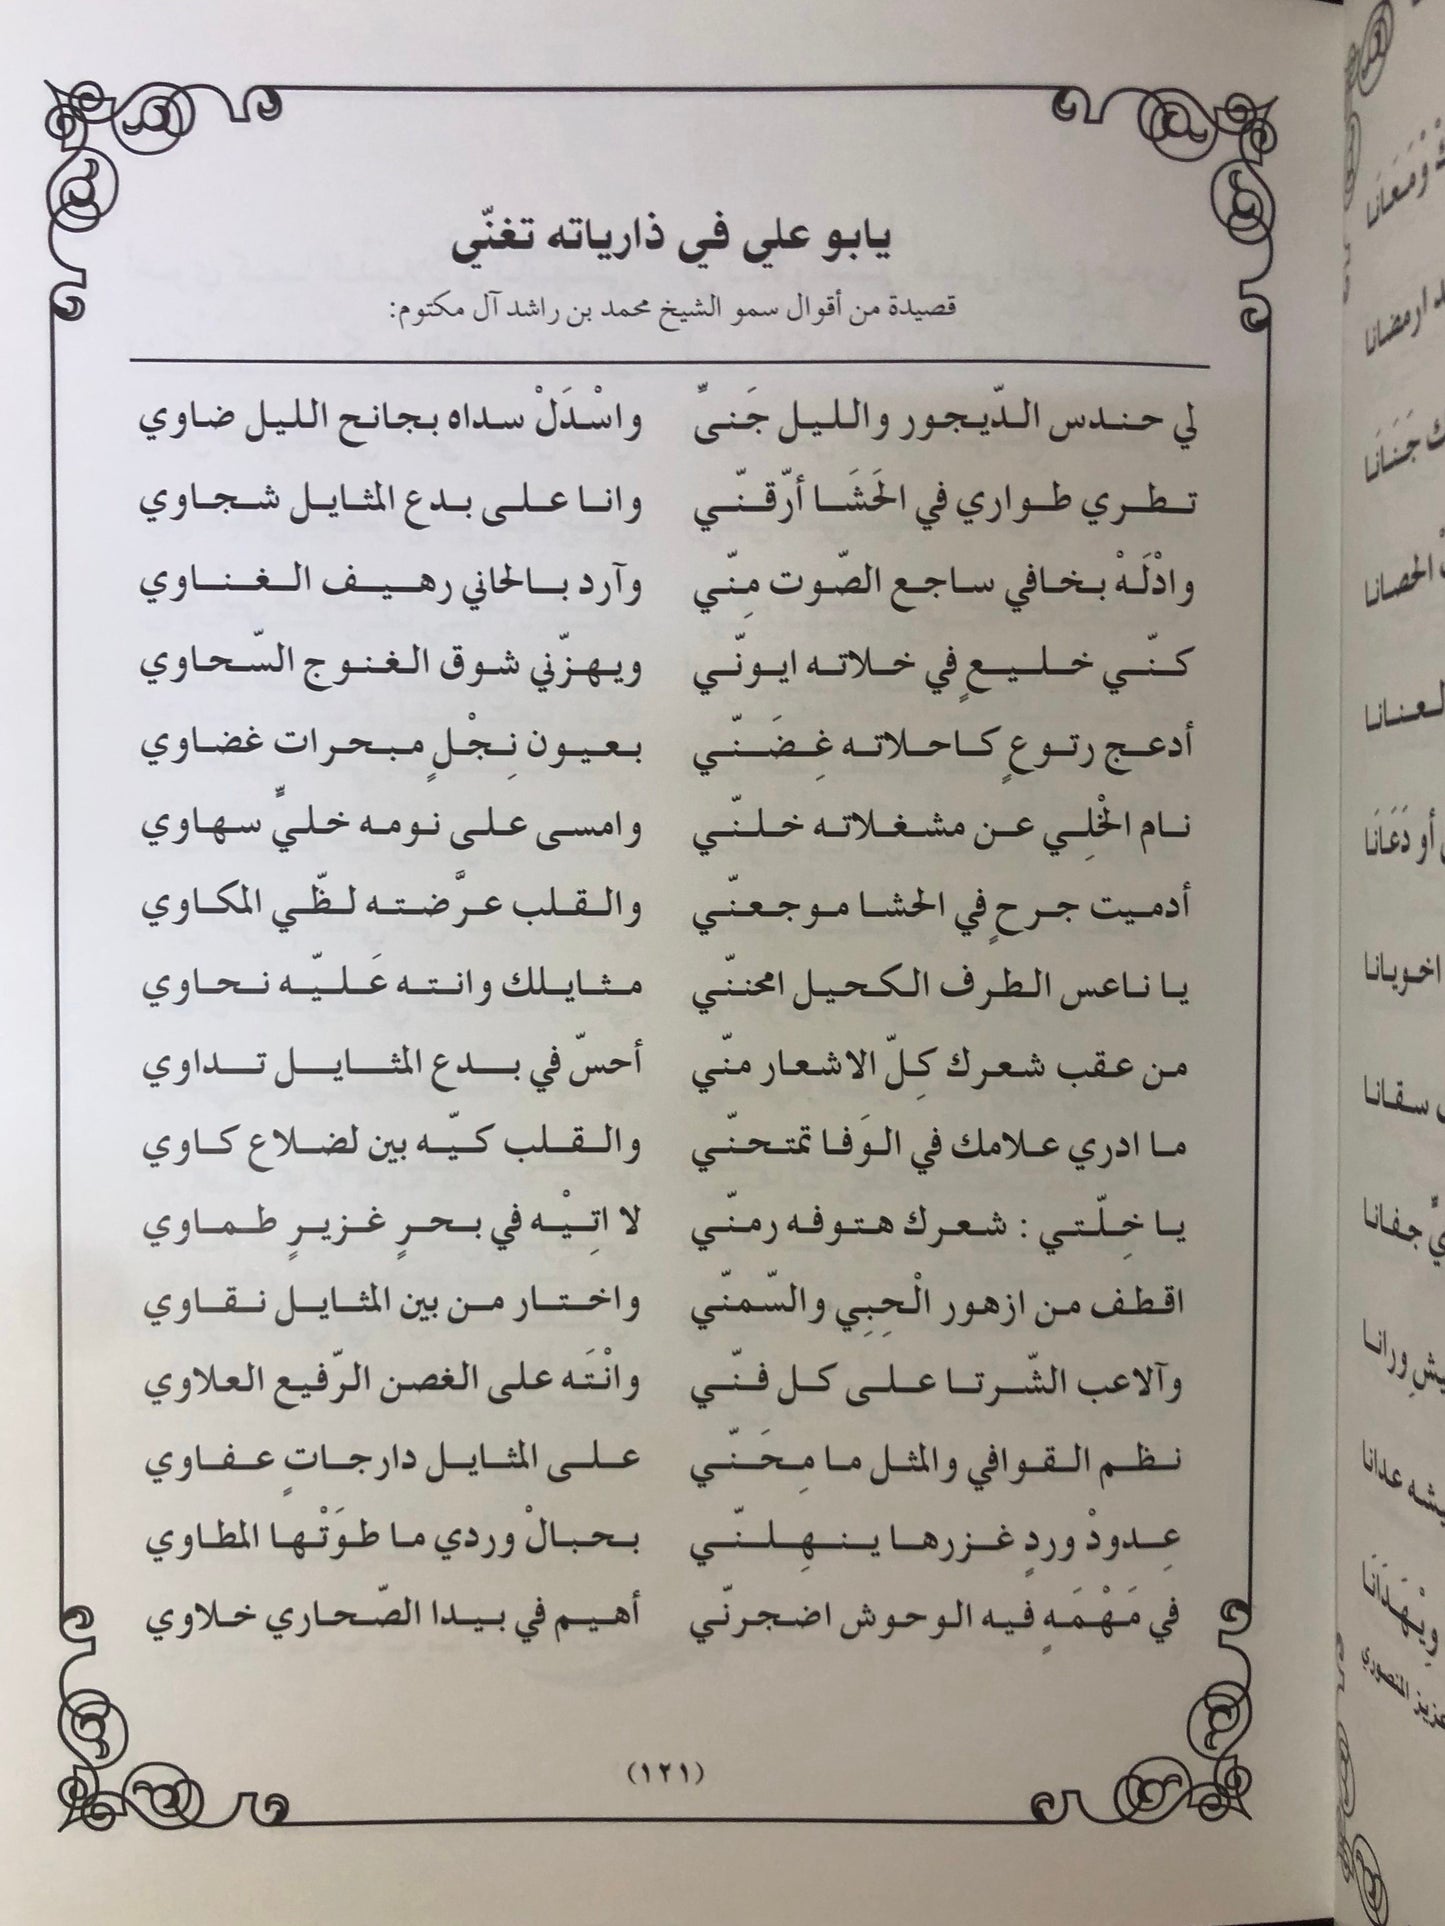 يابو علي في ذارياته تغنّي
قصيدة من أقوال سمو الشيخ محمد بن راشد آل مكتوم:
لي حندس الدّيجور والليل جَنىِّ واسْدَلْ سداه بجانح الليل ضاوي
تطري طواري في الحَشَا أرّقنّي وانا على بدع المثايل شجاوي
وادْلَهْ بخافي ساجع الصّوت مِنّي وآرد بالحاني رهيف الغناوي
كنّي خليعٍ في خلاته ايونّي ويهزّني شوق الغنوج السّحاوي
أدعج رتوعٍ كاحلاته غِضَنّي بعيون نِجْلٍ مبحرات غضاوي
نام الخْلِي عن مشغلاته خلنّي وامسى على نومه خليٍّ سهاوي
أدميت جرحٍ في الحشا موجعنّي والقلب عرَّضته لظّي المكاوي
يا ناعس الطرف الكحيل امحننّي مثايلك وانته عَليّه نحاوي
من عقب شعرك كِلّ الاشعار منّي أحسّ في بدع المثايل تداوي
ما ادري علامك في الوَفا تمتحنّي والقلب كيّه بين لضلاع كاوي
يا خِلّتي : شعرك هتوفه رمنّي لا اتِيْه في بحرٍ غزيرٍ طماوي
اقطف من ازهور الْحِبِي والسّمنّي واختار من بين المثايل نقاوي
وآلاعب الشّرتا على كل فنّي وانْتَه على الغصن الرّفيع العلاوي
نظم القوافي والمثل ما مِحَنّي على المثايل دارجاتٍ عفاوي
عِدودْ وردٍ غزرها ينهِلنّي بحبالْ وردي ما طوَتْها المطاوي
في مَهْمَهٍ فيه الوحوش اضجرنّي أهيم في بيدا الصّحاري خلاوي
(١٢١)
ومَعَانَا
ارمضانا
جَنَانَا
الحصانا
العنانا
أو دَعَانَا
اخويانا
سقانا
جفانا
ورانا
عدانا
ويْهَدَانَا
المنصوري